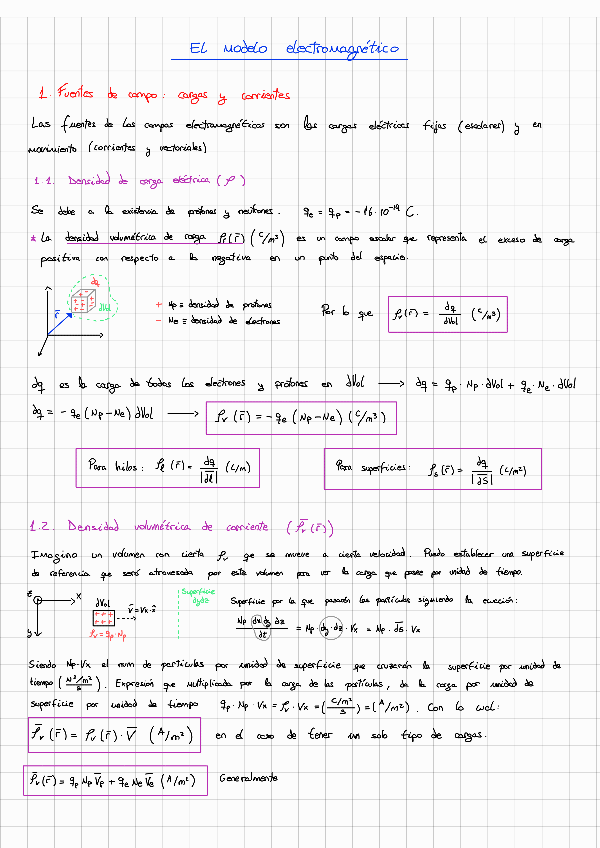 El modelo electromagnético
1. Fuentes de campo: cargas y corrientes
Las fuentes de los campos electromagnéticos son las cargas eléctricas fijas (escalares) y en
movimiento (corrientes y vectoriales)
1.1. Densidad de carga eléctrica (ρ)
Se debe a la existencia de protones y neutrones. qe = qp = -1'6·10⁻¹⁹ C.
* La densidad volumétrica de carga ρv(r̄) (C/m³) es un campo escalar que representa el exceso de carga
positiva con respecto a la negativa en un punto del espacio.
dq
dVol
r̄
+ Np ≡ densidad de protones
- Ne ≡ densidad de electrones
Por lo que ρv(r̄) = dq/dVol (C/m³)
dq es la carga de todos los electrones y protones en dVol → dq = qp · Np · dVol + qe · Ne · dVol
dq = -qe (Np-Ne) dVol → ρv (r̄) = -qe (Np-Ne) (C/m³)
Para hilos: ρl (r̄) = dq/|dl̄| (C/m)
Para superficies: ρs (r̄) = dq/|dS̄| (C/m²)
1.2. Densidad volumétrica de corriente (ρ̄v(r̄))
Imagino un volumen con cierta ρv qe se mueve a cierta velocidad. Puedo establecer una superficie
de referencia que será atravesada por este volumen para ver la carga que posee por unidad de tiempo.
z x y
dVol
v̄ = Vx·x̂
ρv = qp·Np
Superficie
dydz
Superficie por la que pasarán las partículas siguiendo la ecuación:
Np dx dy dz / dt = Np · dy·dz · Vx = Np · ds̄ · Vx
Siendo Np·Vx el num de partículas por unidad de superficie que cruzarán la superficie por unidad de
tiempo. Expresión que multiplicada por la carga de las partículas, da la carga por unidad de
superficie por unidad de tiempo qp · Np · Vx = ρv · Vx = (C/m²/s) = (A/m²). Con lo cual:
ρ̄v (r̄) = ρv (r̄) · V̄ (A/m²) en el caso de tener un solo tipo de cargas.
ρ̄v(r̄) = qp Np V̄p + qe Ne V̄e (A/m²) Generalmente